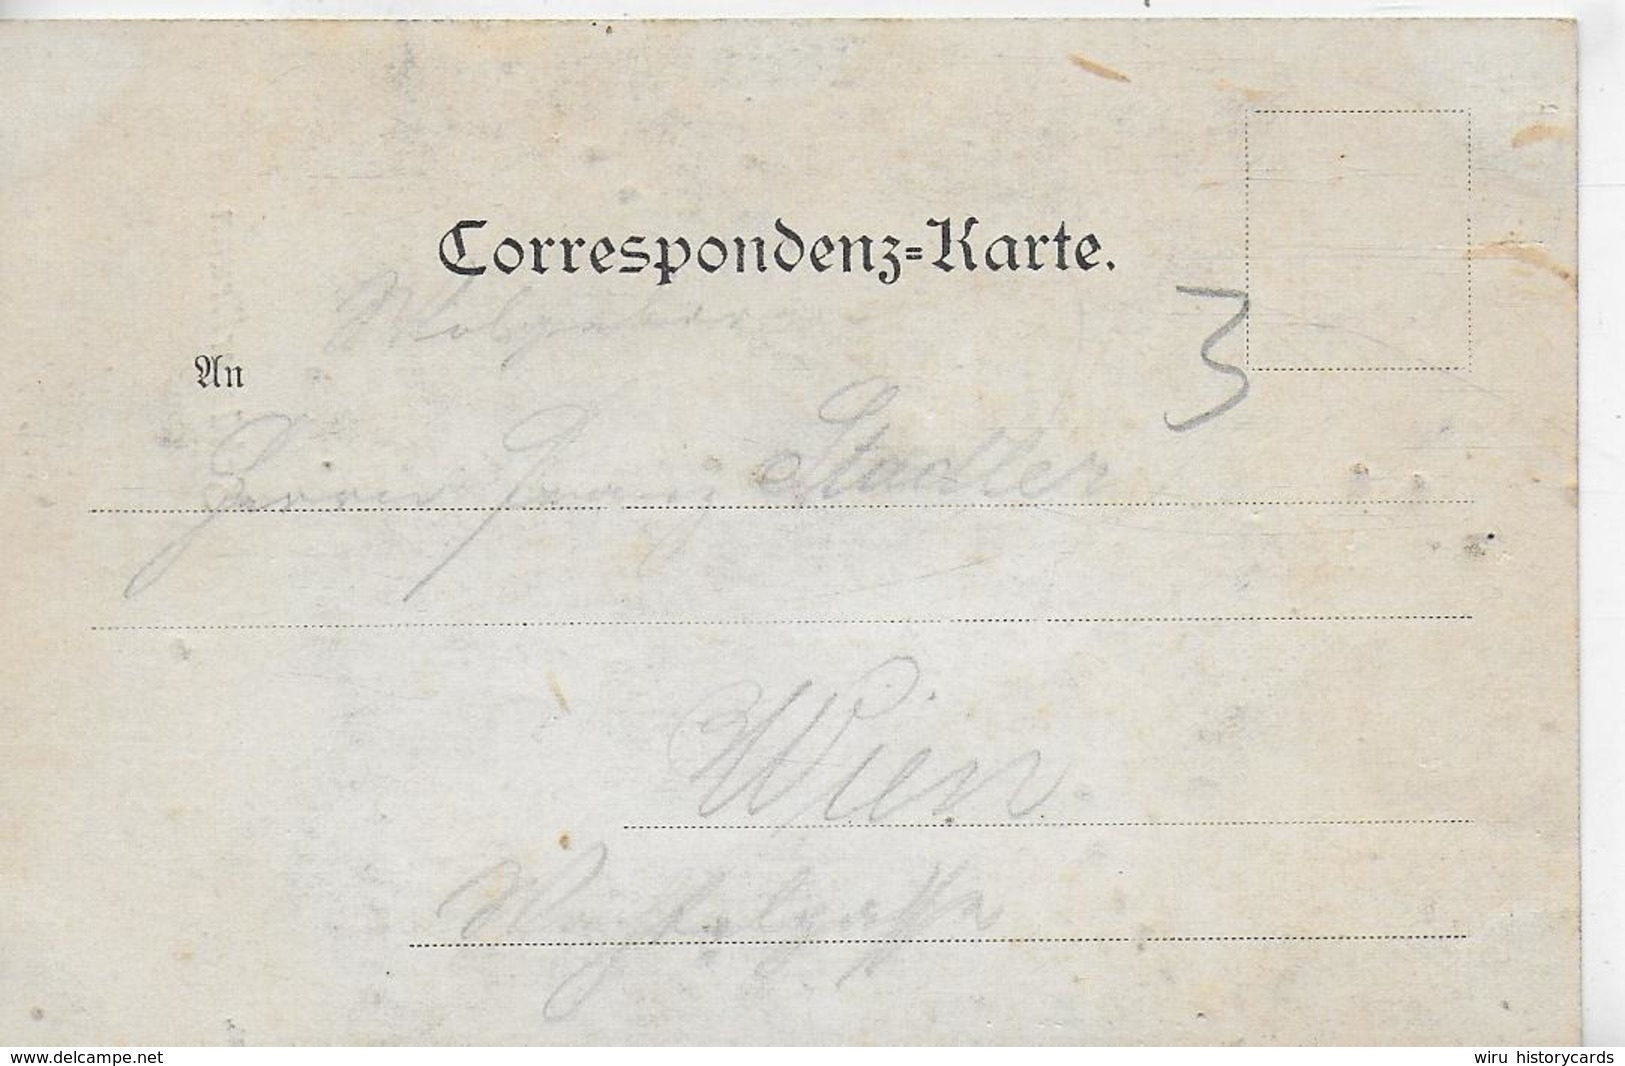 Correspondenz-Karte.
An
3
Herrn Franz Stadler
Wien.
www.delcampe.net
wiru historycards